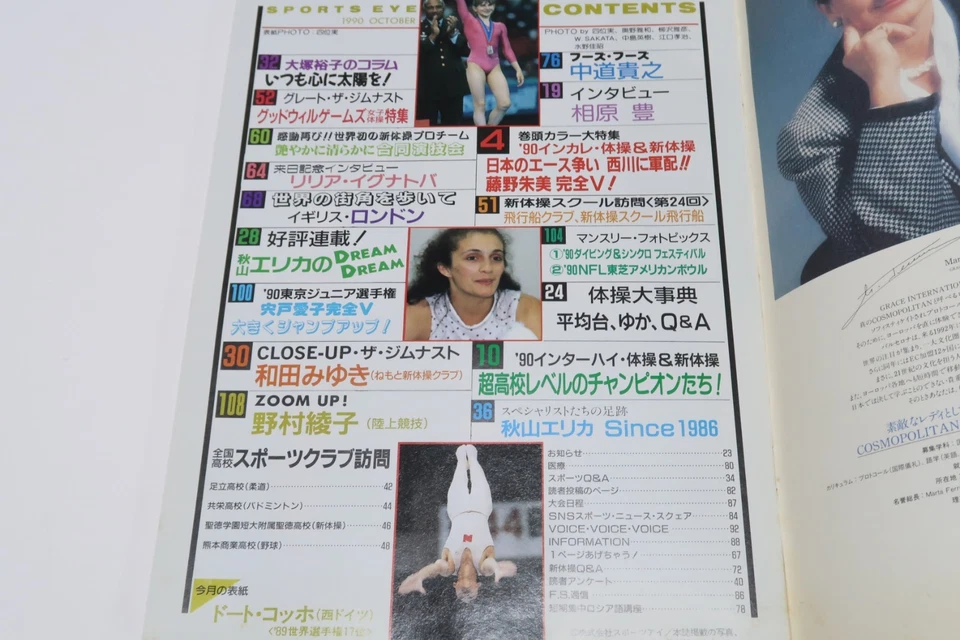 SPORTS EYE
1990 OCTOBER
CONTENTS
表紙PHOTO：四位実
PHOTO by 四位実、奥野雅和、柳沢雅彦、
W. SAKATA、中島英樹、江口孝治、
水野佳昭
32 大塚裕子のコラム
いつも心に太陽を!
52 グレート・ザ・ジムナスト
グッドウィルゲームズ女子体操特集
60 感動再び!!世界初の新体操プロチーム
艶やかに清らかに合同演技会
64 来日記念インタビュー
リリア・イグナトバ
68 世界の街角を歩いて
イギリス・ロンドン
28 好評連載!
秋山エリカのDREAM DREAM
100 '90東京ジュニア選手権
宍戸愛子完全V
大きくジャンプアップ!
30 CLOSE-UP・ザ・ジムナスト
和田みゆき(ねもと新体操クラブ)
108 ZOOM UP!
野村綾子(陸上競技)
全国高校スポーツクラブ訪問
足立高校(柔道) 42
共栄高校(バドミントン) 44
聖徳学園短大附属聖徳高校(新体操) 46
熊本商業高校(野球) 48
今月の表紙
ドート・コッホ(西ドイツ)
<'89世界選手権17位>
76 フーズ・フーズ
中道貴之
19 インタビュー
相原 豊
4 巻頭カラー大特集
'90インカレ・体操&新体操
日本のエース争い 西川に軍配!!
藤野朱美 完全V!
51 新体操スクール訪問<第24回>
飛行船クラブ、新体操スクール飛行船
104 マンスリー・フォトピックス
①'90ダイビング&シンクロ フェスティバル
②'90NFL東芝アメリカンボウル
24 体操大事典
平均台、ゆか、Q&A
10 '90インターハイ・体操&新体操
超高校レベルのチャンピオンたち!
36 スペシャリストたちの足跡
秋山エリカ Since 1986
お知らせ 23
医療 80
スポーツQ&A 34
読者投稿のページ 82
大会日程 87
SNSスポーツ・ニュース・スクェア 84
VOICE・VOICE・VOICE 92
INFORMATION 88
1ページあげちゃう! 67
新体操Q&A 72
読者アンケート 40
F.S.通信 86
GRACE INTERNATION
素敵なレディとし
COSMOPOLITAN